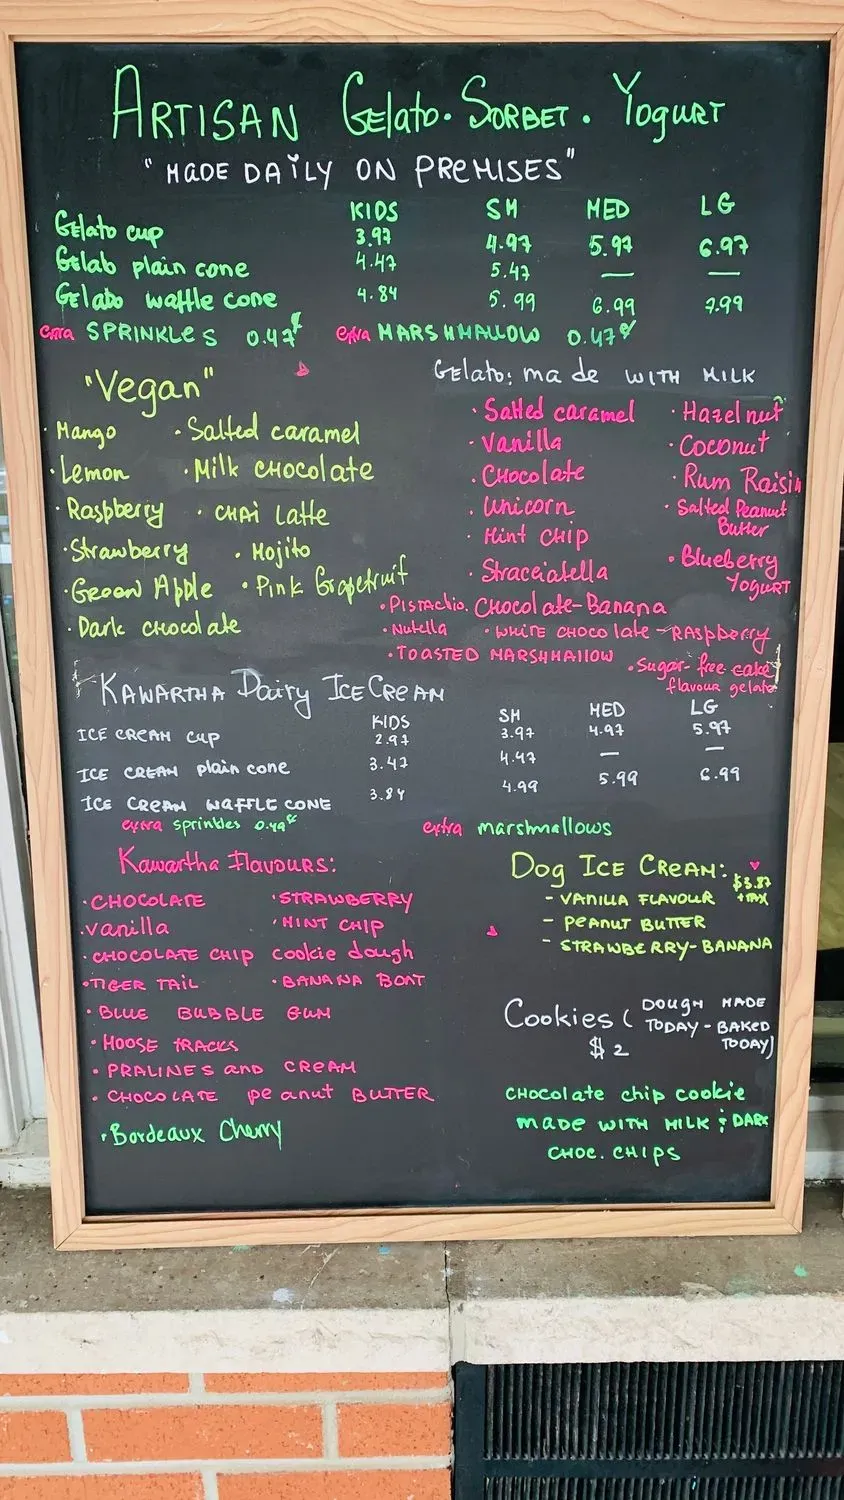 ARTISAN Gelato. SORBET. Yogurt
"MADE DAILY ON PREMISES"
KIDS SM MED LG
Gelato cup 3.97 4.97 5.97 6.97
Gelato plain cone 4.47 5.47 — —
Gelato waffle cone 4.84 5.99 6.99 7.99
extra SPRINKLES 0.47¢ extra MARSHMALLOW 0.47¢
"Vegan"
· Mango · Salted caramel
· Lemon · Milk CHOCOLATE
· Raspberry · CHAI Latte
· Strawberry · Mojito
· Green Apple · Pink Grapefruit
· Dark chocolate
Gelato: made WITH MILK
· Salted caramel · Hazelnut
· Vanilla · Coconut
· Chocolate · Rum Raisin
· Unicorn · Salted Peanut
Butter
· Mint chip
· Stracciatella · Blueberry
YOGURT
· PISTACHIO · CHOCOLATE-Banana
· Nutella · WHITE CHOCOLATE - RASPBERRY
· TOASTED MARSHMALLOW · Sugar-free cake
flavour gelato
KAWARTHA Dairy ICE CREAM
KIDS SM MED LG
ICE CREAM cup 2.97 3.97 4.97 5.97
ICE CREAM plain cone 3.47 4.47 — —
ICE CREAM WAFFLE CONE 3.84 4.99 5.99 6.99
extra sprinkles 0.49¢ extra marshmallows
Kawartha Flavours:
· CHOCOLATE · STRAWBERRY
· Vanilla · MINT CHIP
· CHOCOLATE CHIP cookie dough
· TIGER TAIL · BANANA BOAT
· BLUE BUBBLE GUM
· MOOSE TRACKS
· PRALINES and CREAM
· CHOCOLATE peanut BUTTER
· Bordeaux Cherry
Dog ICE CREAM: $3.87
+TAX
- VANILLA FLAVOUR
- PEANUT BUTTER
- STRAWBERRY-BANANA
Cookies ( DOUGH MADE
TODAY - BAKED
TODAY)
$2
CHOCOLATE chip cookie
made WITH MILK & DARK
CHOC. CHIPS